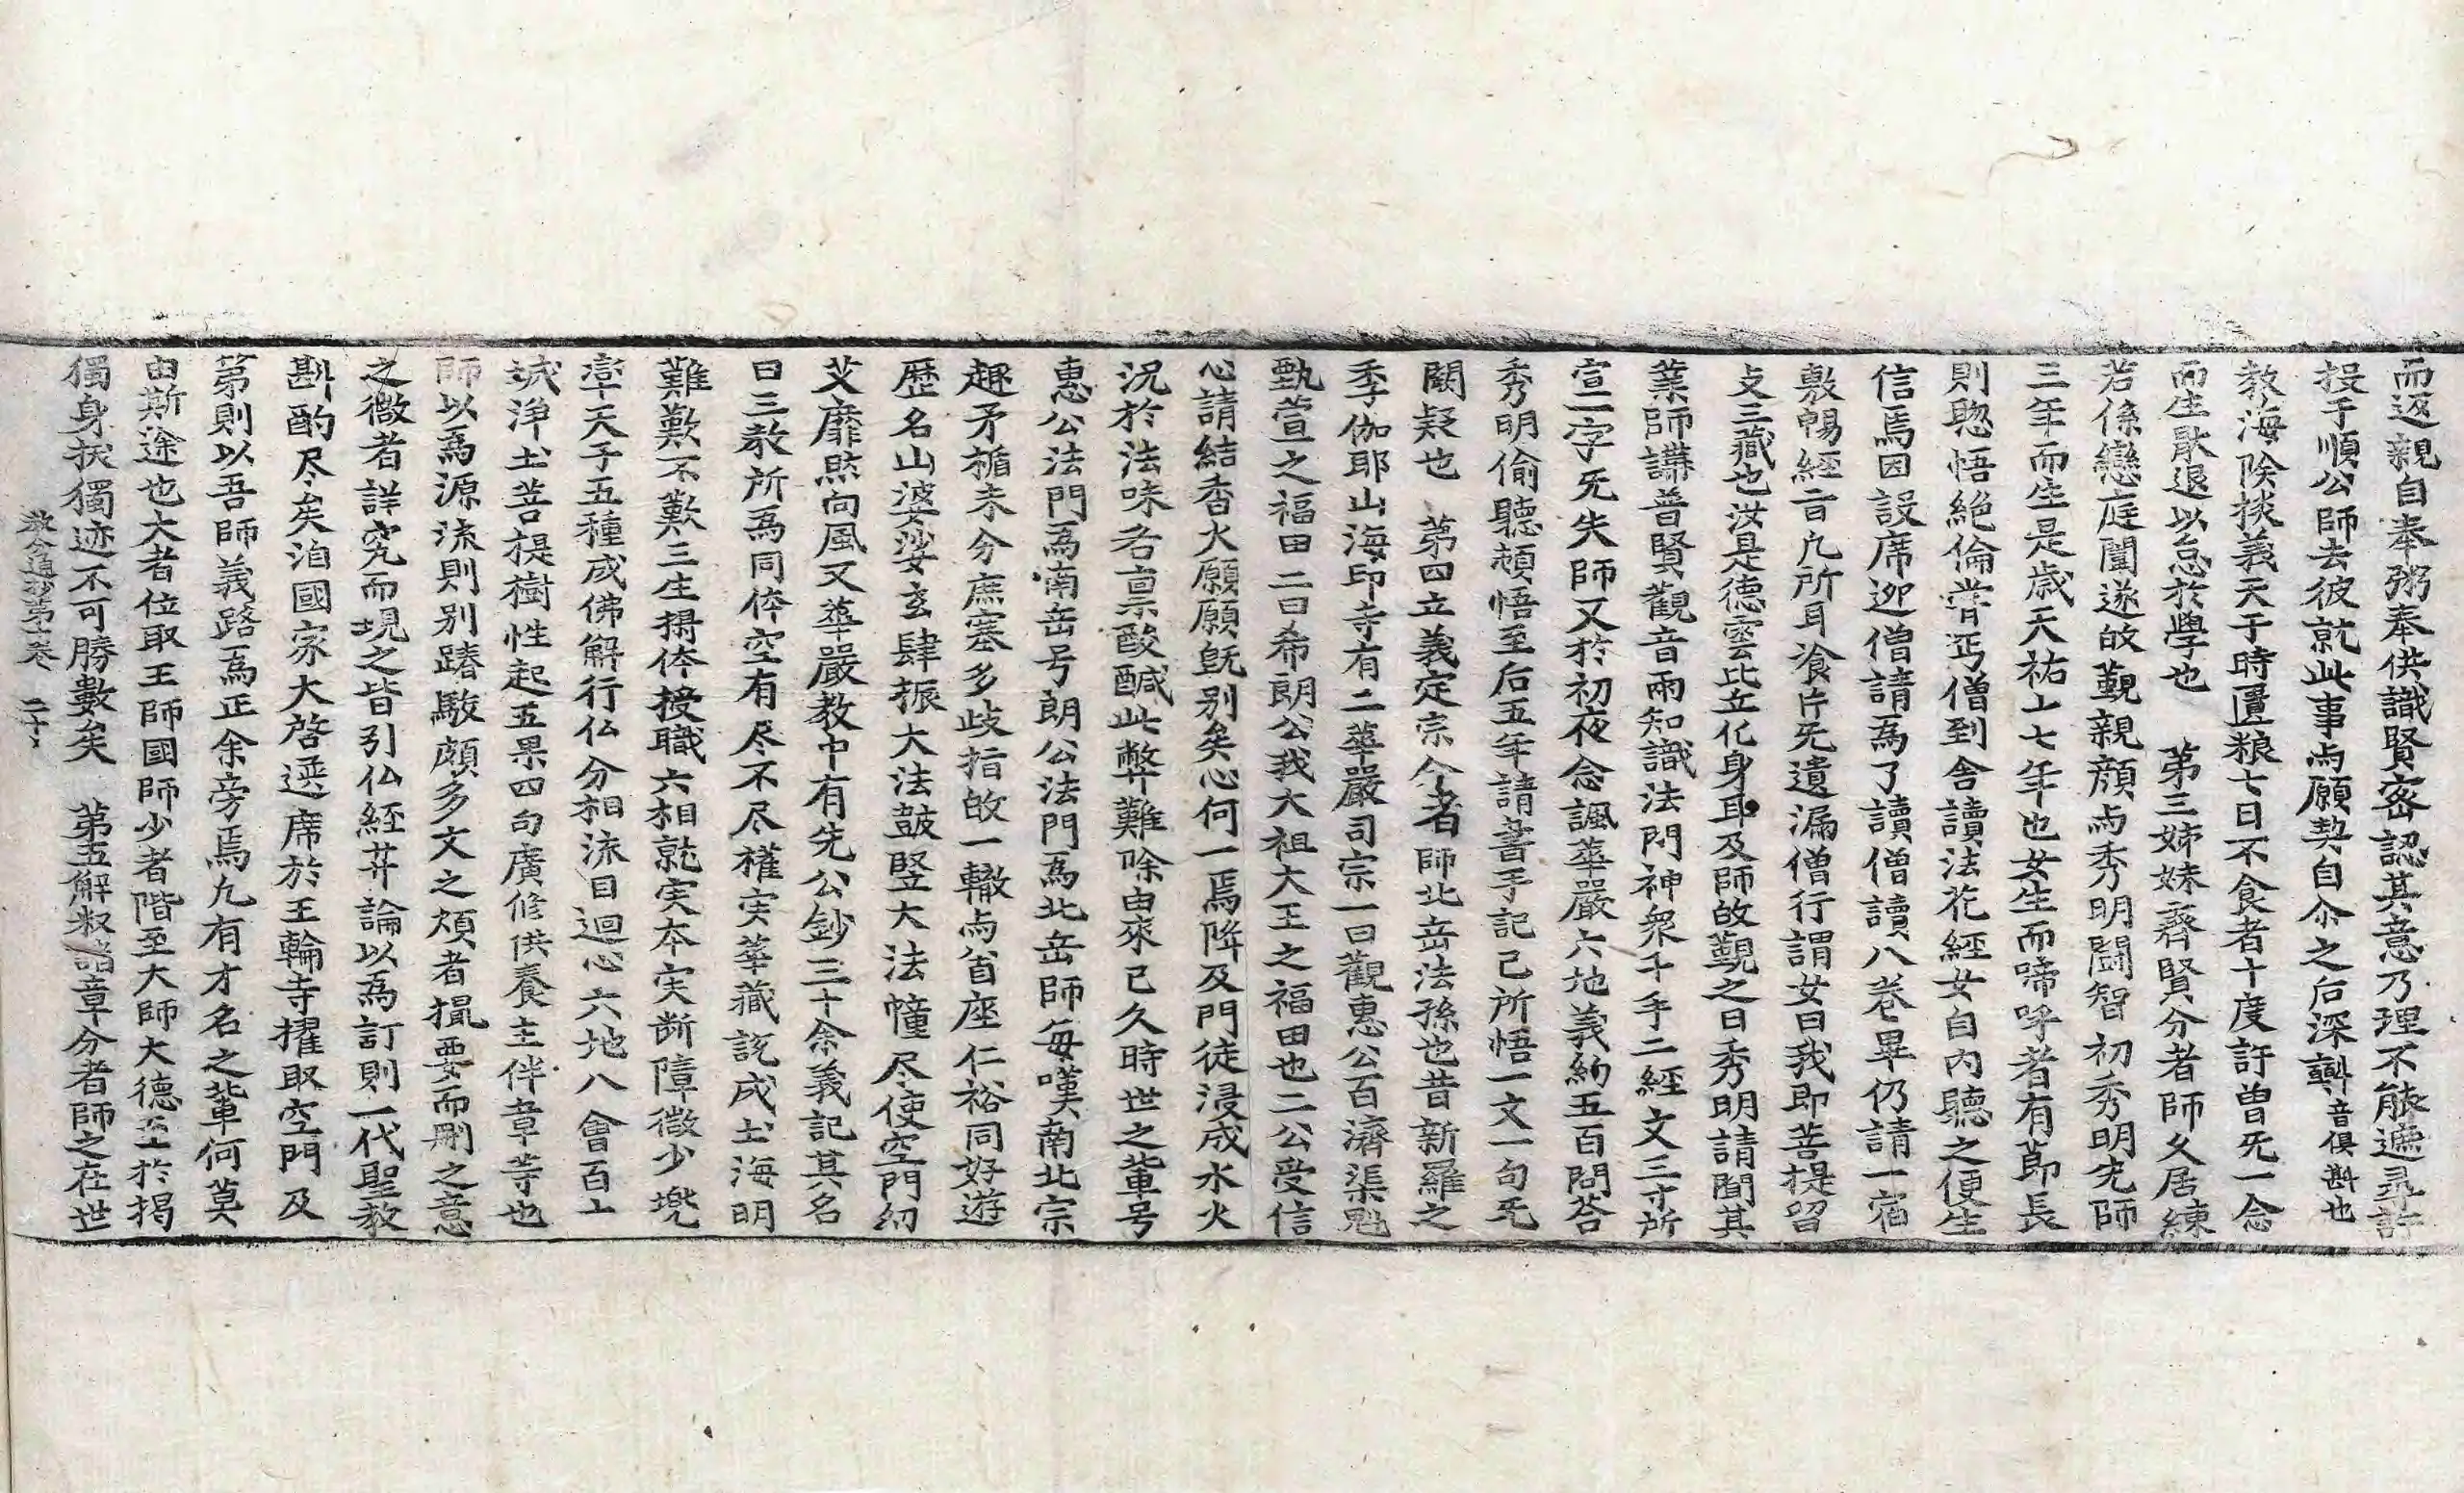 而返親自奉粥奉供識賢密認其意乃理不能遮尋許
投于順公師去彼就此事亦願契自尒之后深𣂏音俱斟也
教海除掞義天于時匱粮七日不食者十度許曽旡一念
而生散退以怠於學也　第三姉妹齊賢分者師久居練
若係戀庭闈遂故覲親顔亦秀明鬪智初秀明宛師
三年而生是歳天祐十七年也女生而啼呼者有莭長
則聡悟絶倫甞丐僧到舍讀法花經女自内聽之便生
信焉因設席迎僧請爲了讀僧讀八巻畢仍請一宿
敷暢經旨九所耳飡片旡遺漏僧行謂女曰我即菩提留
支三藏也汝是德雲比丘化身耶及師故覲之日秀明請聞其
業師講普賢觀音兩知識法門神衆千手二經文三寸所
宣二字旡失師又於初夜念諷華嚴六地義約五百問荅
秀明偷聽頓悟至后五年請書手記己所悟一文一句旡
闕疑也　第四立義定宗分者師北岳法孫也昔新羅之
季伽耶山海印寺有二華嚴司宗一曰觀惠公百濟渠魁
甄萱之福田二曰希朗公我大祖大王之福田也二公受信
心請結香火願願旣别矣心何一焉降及門徒浸成水火
況於法味各禀酸醎此弊難除由來已久時世之軰号
惠公法門爲南岳号朗公法門爲北岳師每嘆南北宗
趣矛楯未分庶塞多歧指故一轍亦首座仁裕同好遊
歴名山婆娑玄肆振大法鼓竪大法幢尽使空門幼
艾靡然向風又華嚴教中有先公鈔三十余義記其名
曰三教所爲同体空有尽不尽權実華藏說成土海明
難歎不歎三生摶体授職六相就実夲実断障微少兠
率天子五種成佛解行仏分相流目迴心六地八會百六
城淨土菩提樹性起五果四句廣修供養主伴章等也
師以爲源流則别蹖駮頗多文之煩者撮要而刪之意
之微者詳究而現之皆引仏經菩論以爲訂則一代聖教
斟酌尽矣洎國家大啓選席於王輪寺擢取空門及
第則以吾師義路爲正余旁焉九有才名之軰何莫
由斯途也大者位取王師國師少者階至大師大德至於揭
獨身扶獨迹不可勝數矣　第五解釈諸章分者師之在世
教分道抄第十卷　二十